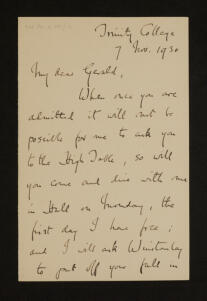 Trinity College
7 Nov. 1930
My dear Gerald,
When once you are
admitted it will not be
possible for me to ask you
to the High Table, so will
you come and dine with me
in Hall on Monday, the
first day I have free;
and I will ask Winstanley
to put off your fall in